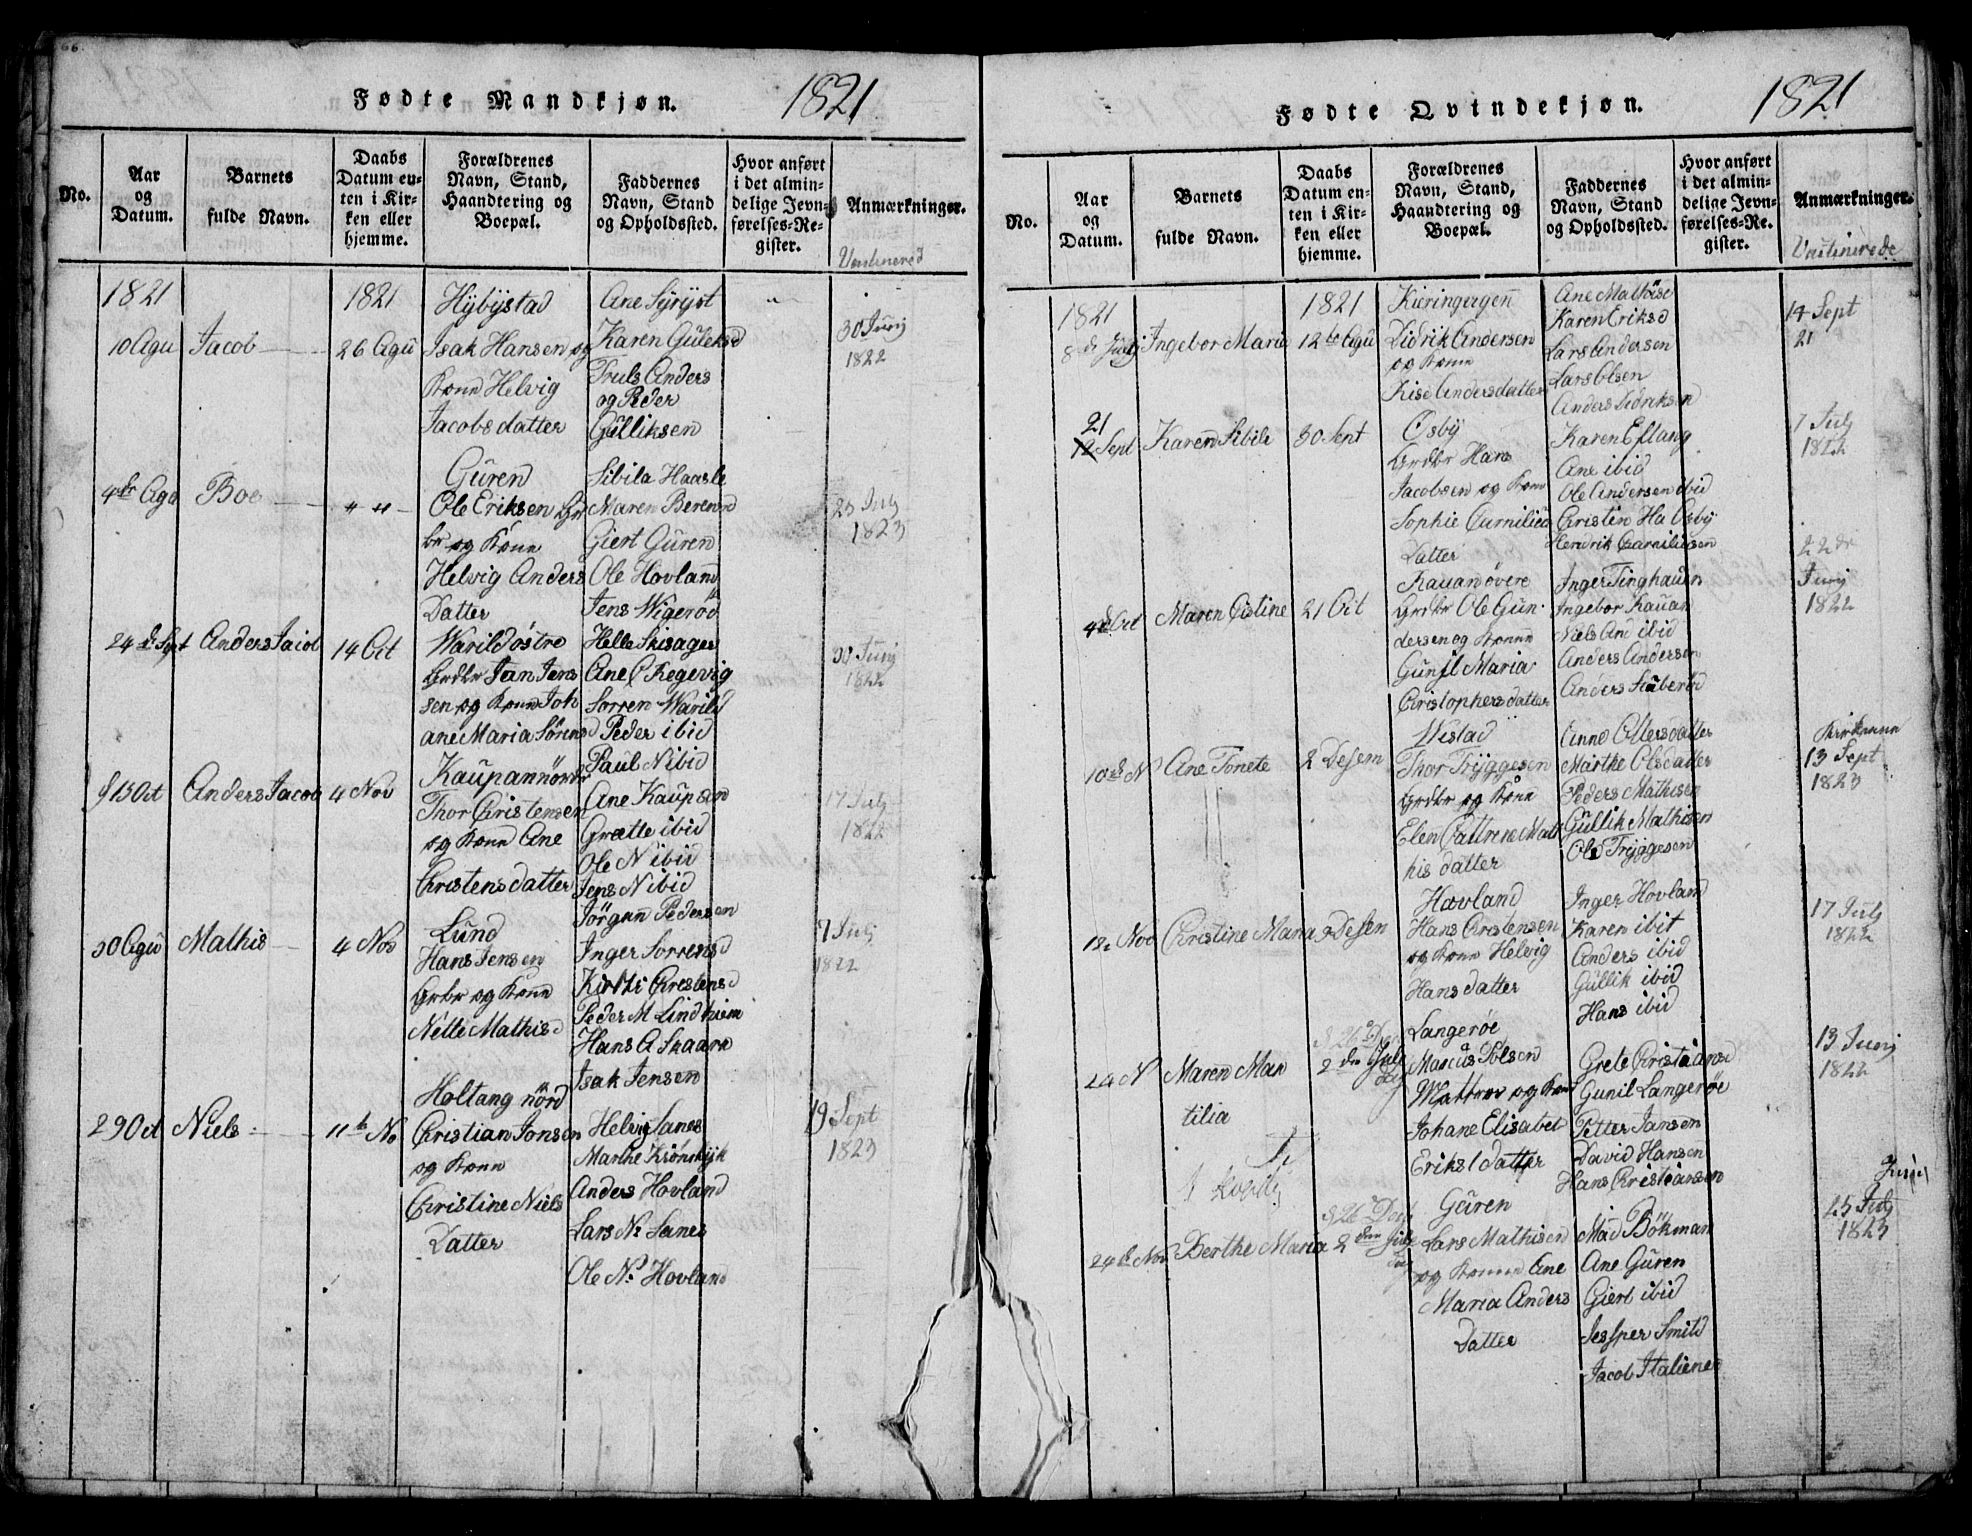 66.
Fødte Mandkjøn. 1821
No.
Aar og Datum.
Barnets fulde Navn.
Daabs Datum enten i Kirken eller hjemme.
Forældrenes Navn, Stand, Haandtering og Boepæl.
Faddernes Navn, Stand og Opholdssted.
Hvor anført i det almindelige Jevnførelses-Register.
Anmærkninger.
1821
1821
Hybystad
Ane
10 Agu
Jacob
26 Agu
Isak Hansen og
Konn Helvig
Jacobsdatter
Karen Guleksd
Truls Anders
og Peder
Gülliksen
30 Junj
1822
4de Agu
Boe
" "
Guren
Ole Eriksen Gr
br og Konn
Helvig Anders
Datter
Sibila Haasle
Maren Berennd
Giert Guren
Ole Hovland
Jens Wigerød
23 Julj
1823
24 d Sept
Anders Jacob
14 Oct
Warild østre
Grdbr Jan Jens
sen og Konn Joh
ane Maria Sørensd
Helle Skisager
Ane C Kegevig
Sorren Warild
Peder ibid
Paul N ibid
30 Junj
1822
15 Oct
Anders Jacob
4 Nov
Kaupamnørdr
Thor Christensen
og Konn Ane
Christensdatter
Ane Kaupan
Grætte ibid
Ole N ibid
Jens N ibid
Jörgan Pedersen
17 Julj
1822
30 Agu
Mathis
4 Nov
Lund
Hans Jensen
Grbr og Konn
Nelle Mathisd
Inger Sorrensd
Kirsti Christensd
Peder M Lindhiem
Hans A Skaarn
Isak Jensen
7 Julj
1822
29 Oct
Niels
11te No
Holtang nörd
Christian Jonsen
og Konn
Christine Niels
Datter
Helvig Sanes
Marthe
Anders Hovland
Lars N. Sanes
Ole N. Hovland
19 Sept
1823
Fødte Qvindekjøn. 1821
No.
Aar og Datum.
Barnets fulde Navn.
Daabs Datum enten i Kirken eller hjemme.
Forældrenes Navn, Stand, Haandtering og Boepæl.
Faddernes Navn, Stand og Opholdssted.
Hvor anført i det almindelige Jevnførelses-Register.
Anmærkninger.
1821
8 d Julj
Ingebor Maria
1821
12te Agu
Didrik Andersen
og Konn
Andersdatter
Ane Mathisd
Karen Eriksd
Lars Andersen
Lars Olsen
Anders Didriksen
14 Sept
21
21
12 Sept
Karen Sibile
30 Sept
Osby
Grdbr Hans
Jacobsen og Konn
Sophie Carnilius
Datter
Karen Eftang
Ane ibid
Ole Andersen ibid
Christin Ha Osby
Hendrik Carniliusen
7 Julj
1822
4de Oct
Maren Cistine
21 Oct
Kauan övere
Grdbr Ole Gun
dersen og Konnn
Gunil Maria
Christophersdatter
Inger Tinghaun
Ingebor Kauan
Niels And ibid
Anders Andersen
Anders Staberød
22 de
Junj
1822
10de N
Ane Tonete
2 Desem
Westad
Thor Tryggesen
Grdbr og Konn
Elen Cattrene Mat
his datter
Anne Ollersdatter
Marthe Olsdatter
Peders Mathisen
Gullik Mathisen
Ole Tryggesen
13 Sept
1823
Nov
Christine Maria
Desem
Hovland
Hans Christensen
og Konn Helvig
Hansdatter
Inger Hovland
Karen ibit
Anders ibid
Gullik ibid
Hans ibid
17 Julj
1822
24 N
Maren Man
tilia
2 den Julj
Langerøe
Marcus Polsen
Mattros og Kone
Johane Elisabet
Eriks datter
Grete Christiansd
Gunil Langerøe
Petter Jansen
David Hansen
Hans Christiansen
13 Junj
1822
24de Nov
Berthe Maria
2 den Jule
Guren
Lars Mathisen
og Konnn Ane
Maria Anders
Datter
Mad Bökman
Ane Guren
Giert ibid
Jesper Smild
Jacob Italiener
25 Julj
1823